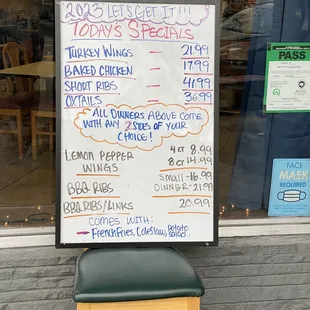 2023 LET'S GET IT!!!
TODAY'S SPECIALS
TURKEY WINGS - 21.99
BAKED CHICKEN - 17.99
SHORT RIBS - 41.99
OXTAILS - 36.99
ALL DINNERS ABOVE COME
WITH ANY 2 SIDES OF YOUR
CHOICE!
LEMON PEPPER 4CT 8.99
WINGS 8CT 14.99
BBQ RIBS SMALL - 16.99
DINNER - 21.99
BBQ RIBS/LINKS 20.99
COMES WITH:
- FRENCH FRIES, COLESLAW, POTATO
SALAD
PASS
FACE
MASK
REQUIRED